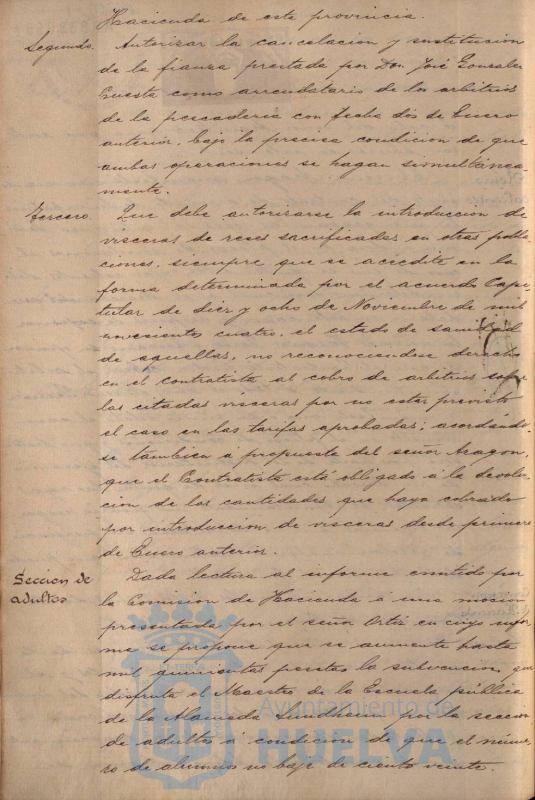 Hacienda de esta provincia.
Segundo. Autorizar la cancelacion y sustitucion
de la fianza prestada por Don José Gonzalez
Cuesta como arrendatario de los arbitrios
de la pescaderia con fecha dos de Enero
anterior, bajo la precisa condicion de que
ambas operaciones se hagan simultánea
mente.
Tercero. Que debe autorizarse la introduccion de
visceras de reses sacrificadas en otras pobla
ciones, siempre que se acredite en la
forma determinada por el acuerdo Capi
tular de diez y ocho de Noviembre de mil
novecientos cuatro, el estado de sanidad
de aquellas, no reconociendose derecho
en el Contratista al cobro de arbitrios sobre
las citadas visceras por no estar previsto
el caso en las tarifas aprobadas; acordándo
se tambien á propuesta del señor Aragon,
que el Contratista está obligado á la devolu
cion de las cantidades que haya cobrado
por introduccion de visceras desde primero
de Enero anterior.
Seccion de
adultos
Dada lectura al informe emitido por
la Comision de Hacienda á una mocion
presentada por el señor Ortiz en cuyo infor
me se propone que se aumente hasta
mil quinientas pesetas la subvencion que
disfruta el Maestro de la Escuela pública
de la Alameda Sundheim por la seccion
de adultos á condicion de que el núme
ro de alumnos no baje de ciento veinte.
Ayuntamiento de
HUELVA